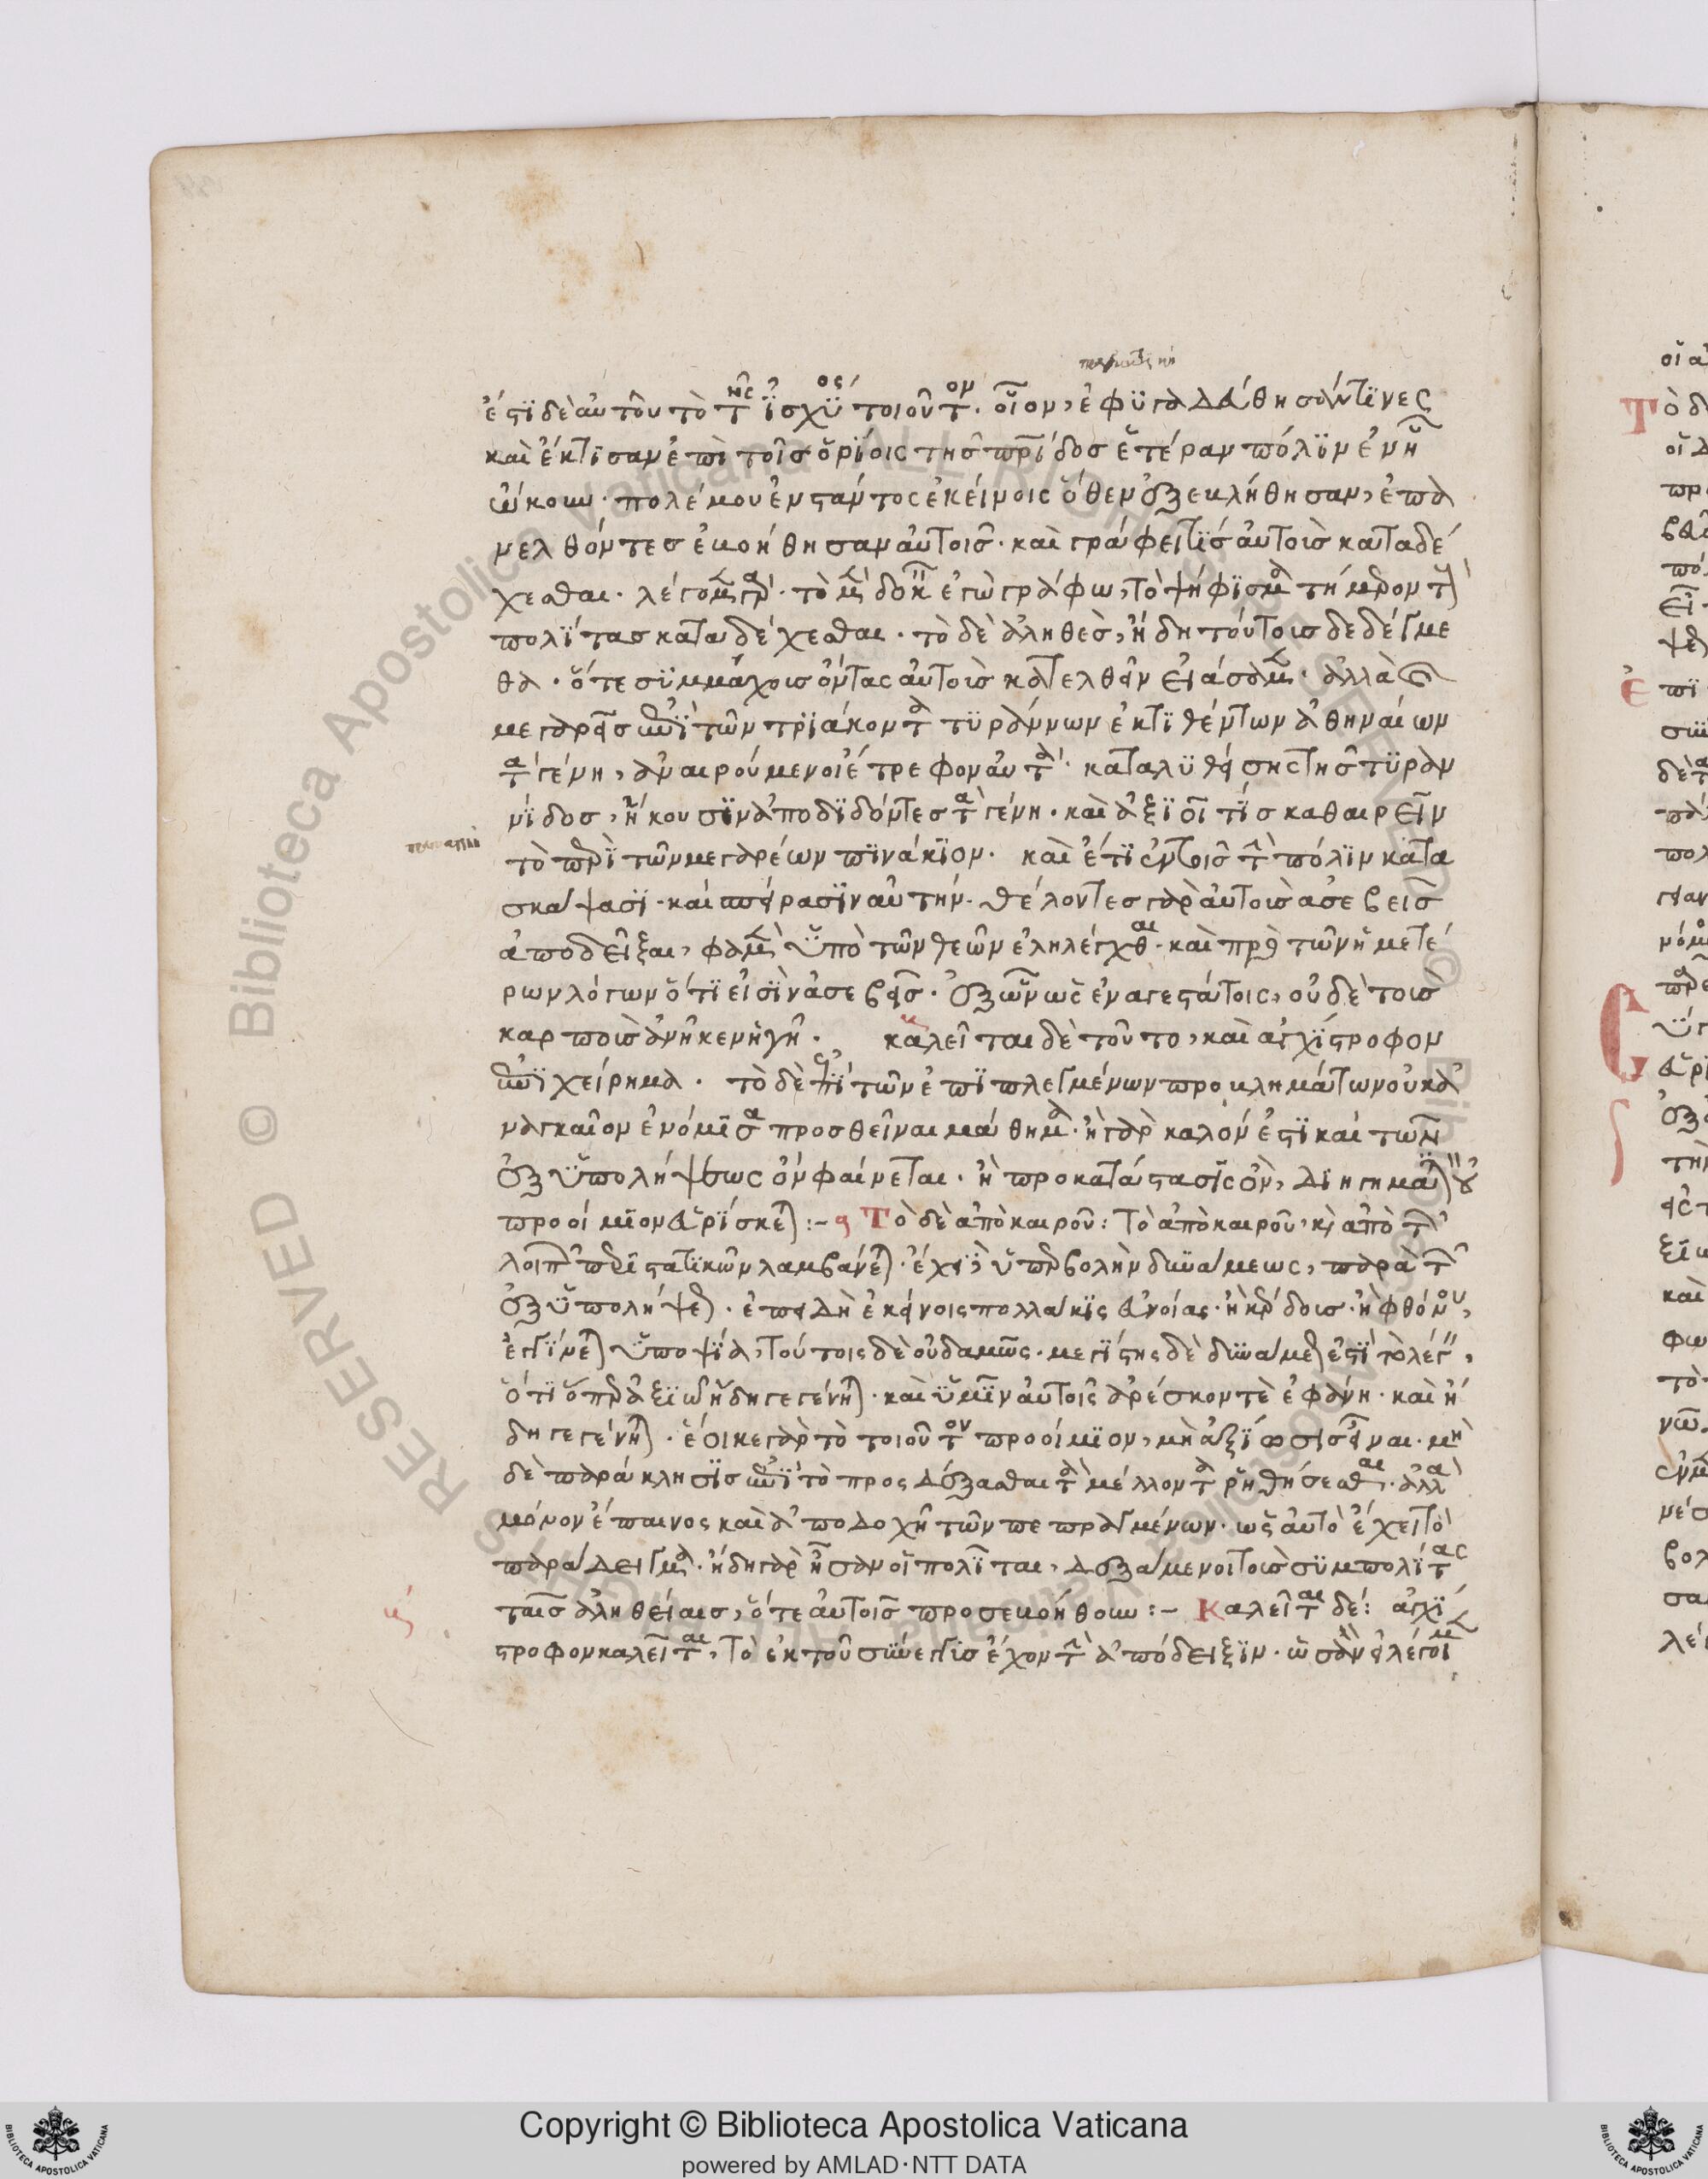 ἔστι δὲ αὐτοῦ τὸ τῆς ἰσχύος τοιοῦτον. οἷον, ἐφυγαδεύθησάν τινες
καὶ ἔκτισαν ἐπὶ τοῖς ὁρίοις τῆς πατρίδος ἑτέραν πόλιν ἐν ᾗ
ᾤκουν. πολέμου ἐνστάντος ἐκείνοις ὅθεν ἐξεκλήθησαν, ἐπα
νελθόντες ἐβοήθησαν αὐτοῖς. καὶ γράφει τις αὐτοὺς καταδέ
χεσθαι. λέγομεν γάρ. τὸ μὲν δοκεῖν ἐγὼ γράφω, τὸ ψήφισμα τήμερον τοὺς
πολίτας καταδέχεσθαι. τὸ δὲ ἀληθὲς, ἤδη τούτοις δεδέγμε
θα. ὅτε συμμάχους ὄντας αὐτοὺς κατελθεῖν εἰάσαμεν. ἀλλὰ
μεγαρεῖς ἐπὶ τῶν τριάκοντα τυράννων ἐκτιθέντων ἀθηναίων
τὰ γένη, ἀναιρούμενοι ἔτρεφον αὐτά. καταλυθείσης τῆς τυραν
νίδος, ἥκουσιν ἀποδιδόντες τὰ γένη. καὶ ἀξιοῖ τις καθαιρεῖν
τὸ περὶ τῶν μεγαρέων πινάκιον. καὶ ἔτι ἐν τοῖς τὴν πόλιν κατα
σκάψασι. καὶ σπείρασιν αὐτήν. θέλοντες γὰρ αὐτοὺς ἀσεβεῖς
ἀποδεῖξαι, φαμὲν ὑπὸ τῶν θεῶν ἐληλέγχθαι. καὶ πρὸ τῶν ἡμετέ
ρων λόγων ὅτι εἰσὶν ἀσεβεῖς. ἐξ ὧν ὡς ἐναγεστάτοις, οὐδὲ τοὺς
καρποὺς ἀνῆκεν ἡ γῆ. καλεῖται δὲ τοῦτο, καὶ ἀγχίστροφον
ἐπιχείρημα. τὸ δὲ ἐπὶ τῶν ἐπιπλεγμένων προβλημάτων οὐκ ἀ
ναγκαῖον ἐνόμισα προσθεῖναι μάθημα. ἢ γὰρ καλόν ἐστι καὶ τῶν
ἐξ ὑπολήψεως ὂν φαίνεται. ἢ προκατάστασις ὂν, διηγήματος οὐ
προοίμιον εὑρίσκεται:- Τὸ δὲ ἀπὸ καιροῦ: Τὸ ἀπὸ καιροῦ, καὶ ἀπὸ τῶν
λοιπῶν περιστατικῶν λαμβάνεται. ἔχει, ὑπερβολὴν δυνάμεως, παρὰ τὴν
ἐξ ὑπολήψεως. ἐπειδὴ ἐκείνοις πολλάκις εὐνοίας. ἢ κέρδους. ἢ φθόνου,
ἐγίνεται ὑποψία, τούτοις δὲ οὐδαμῶς. μεγίστης δὲ δυνάμεως ἐστὶ τὸ λέγειν,
ὅτι ὅπερ ἀξιῶ ἤδη γεγένηται. καὶ ὑμῖν αὐτοῖς ἀρέσκον τὲ ἐφάνη. καὶ ἤ
δη γεγένηται. ἔοικε γὰρ τὸ τοιοῦτον προοίμιον, μὴ ἀξίωσις εἶναι. μη
δὲ παράκλησις ἐπὶ τὸ προσδέξασθαι τὰ μέλλοντα ῥηθήσεσθαι. ἀλλὰ
μόνον ἔπαινος καὶ ἀποδοχὴ τῶν πεπραγμένων. ὡς αὐτὸ ἔχει τὸ
παράδειγμα. ἤδη γὰρ ἦσαν οἱ πολῖται, δεξάμενοι τοὺς συμπολίτας
ταῖς ἀληθείαις, ὅτε αὐτοῖς προσεβοήθουν:- Καλεῖται δέ: ἀγχί
στροφον καλεῖται, τὸ ἐκ τοῦ σύνεγγυς ἔχον τὴν ἀπόδειξιν. ὡσὰν εἰ λέγοιμεν